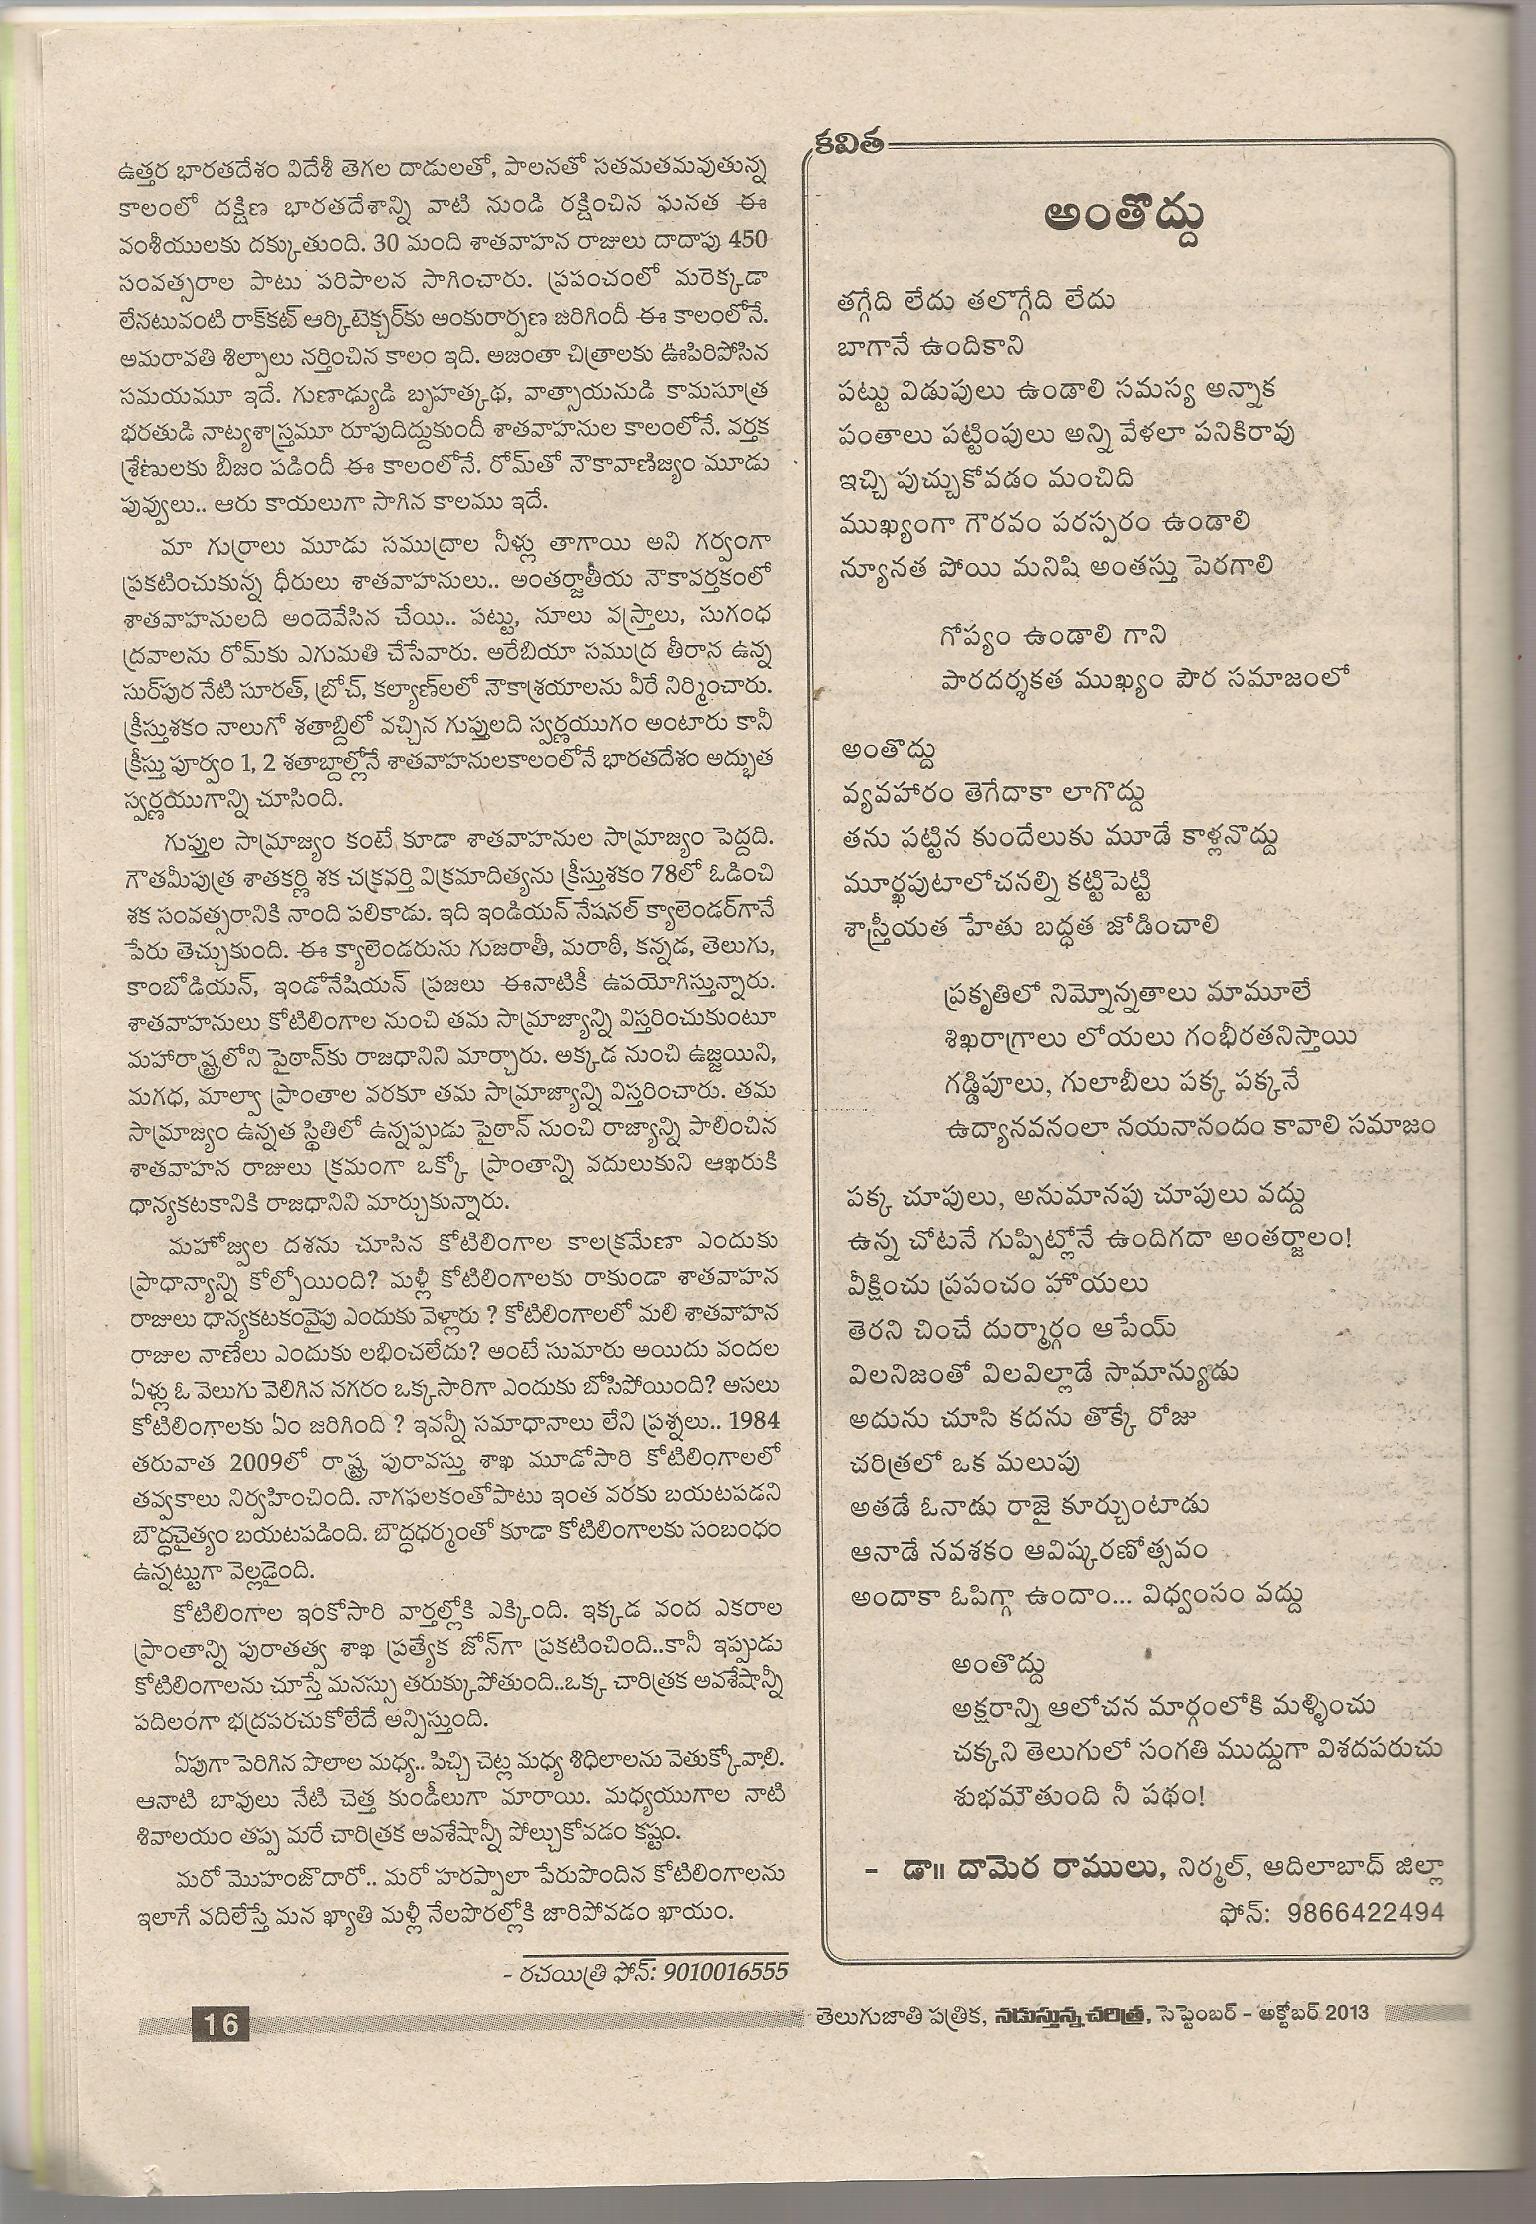 ఉత్తర భారతదేశం విదేశీ తెగల దాడులతో, పాలనతో సతమతమవుతున్న
కాలంలో దక్షిణ భారతదేశాన్ని వాటి నుండి రక్షించిన ఘనత ఈ
వంశీయులకు దక్కుతుంది. 30 మంది శాతవాహన రాజులు దాదాపు 450
సంవత్సరాల పాటు పరిపాలన సాగించారు. ప్రపంచంలో మరెక్కడా
లేనటువంటి రాక్‌కట్ ఆర్కిటెక్చర్‌కు అంకురార్పణ జరిగిందీ ఈ కాలంలోనే.
అమరావతి శిల్పాలు నర్తించిన కాలం ఇది. అజంతా చిత్రాలకు ఊపిరిపోసిన
సమయమూ ఇదే. గుణాఢ్యుడి బృహత్కథ, వాత్సాయనుడి కామసూత్ర
భరతుడి నాట్యశాస్త్రమూ రూపుదిద్దుకుందీ శాతవాహనుల కాలంలోనే. వర్తక
శ్రేణులకు బీజం పడిందీ ఈ కాలంలోనే. రోమ్‌తో నౌకావాణిజ్యం మూడు
పువ్వులు.. ఆరు కాయలుగా సాగిన కాలము ఇదే.
మా గుర్రాలు మూడు సముద్రాల నీళ్లు తాగాయి అని గర్వంగా
ప్రకటించుకున్న ధీరులు శాతవాహనులు.. అంతర్జాతీయ నౌకావర్తకంలో
శాతవాహనులది అందెవేసిన చేయి.. పట్టు, నూలు వస్త్రాలు, సుగంధ
ద్రవాలను రోమ్‌కు ఎగుమతి చేసేవారు. అరేబియా సముద్ర తీరాన ఉన్న
సుర్‌పుర నేటి సూరత్, బ్రోచ్, కల్యాణ్‌లలో నౌకాశ్రయాలను వీరే నిర్మించారు.
క్రీస్తుశకం నాలుగో శతాబ్దిలో వచ్చిన గుప్తులది స్వర్ణయుగం అంటారు కానీ
క్రీస్తు పూర్వం 1, 2 శతాబ్దాల్లోనే శాతవాహనులకాలంలోనే భారతదేశం అద్భుత
స్వర్ణయుగాన్ని చూసింది.
గుప్తుల సామ్రాజ్యం కంటే కూడా శాతవాహనుల సామ్రాజ్యం పెద్దది.
గౌతమీపుత్ర శాతకర్ణి శక చక్రవర్తి విక్రమాదిత్యను క్రీస్తుశకం 78లో ఓడించి
శక సంవత్సరానికి నాంది పలికాడు. ఇది ఇండియన్ నేషనల్ క్యాలెండర్‌గానే
పేరు తెచ్చుకుంది. ఈ క్యాలెండరును గుజరాతీ, మరాఠీ, కన్నడ, తెలుగు,
కాంబోడియన్, ఇండోనేషియన్ ప్రజలు ఈనాటికీ ఉపయోగిస్తున్నారు.
శాతవాహనులు కోటిలింగాల నుంచి తమ సామ్రాజ్యాన్ని విస్తరించుకుంటూ
మహారాష్ట్రలోని పైఠాన్‌కు రాజధానిని మార్చారు. అక్కడ నుంచి ఉజ్జయిని,
మగధ, మాల్వా ప్రాంతాల వరకూ తమ సామ్రాజ్యాన్ని విస్తరించారు. తమ
సామ్రాజ్యం ఉన్నత స్థితిలో ఉన్నప్పుడు పైఠాన్ నుంచి రాజ్యాన్ని పాలించిన
శాతవాహన రాజులు క్రమంగా ఒక్కో ప్రాంతాన్ని వదులుకుని ఆఖరుకి
ధాన్యకటకానికి రాజధానిని మార్చుకున్నారు.
మహోజ్వల దశను చూసిన కోటిలింగాల కాలక్రమేణా ఎందుకు
ప్రాధాన్యాన్ని కోల్పోయింది? మళ్లీ కోటిలింగాలకు రాకుండా శాతవాహన
రాజులు ధాన్యకటకంవైపు ఎందుకు వెళ్లారు ? కోటిలింగాలలో మలి శాతవాహన
రాజుల నాణేలు ఎందుకు లభించలేదు? అంటే సుమారు అయిదు వందల
ఏళ్లు ఓ వెలుగు వెలిగిన నగరం ఒక్కసారిగా ఎందుకు బోసిపోయింది? అసలు
కోటిలింగాలకు ఏం జరిగింది ? ఇవన్నీ సమాధానాలు లేని ప్రశ్నలు.. 1984
తరువాత 2009లో రాష్ట్ర పురావస్తు శాఖ మూడోసారి కోటిలింగాలలో
తవ్వకాలు నిర్వహించింది. నాగఫలకంతోపాటు ఇంత వరకు బయటపడని
బౌద్ధచైత్యం బయటపడింది. బౌద్ధధర్మంతో కూడా కోటిలింగాలకు సంబంధం
ఉన్నట్టుగా వెల్లడైంది.
కోటిలింగాల ఇంకోసారి వార్తల్లోకి ఎక్కింది. ఇక్కడ వంద ఎకరాల
ప్రాంతాన్ని పురాతత్వ శాఖ ప్రత్యేక జోన్‌గా ప్రకటించింది..కానీ ఇప్పుడు
కోటిలింగాలను చూస్తే మనస్సు తరుక్కుపోతుంది..ఒక్క చారిత్రక అవశేషాన్నీ
పదిలంగా భద్రపరచుకోలేదే అన్పిస్తుంది.
ఏపుగా పెరిగిన పొలాల మధ్య.. పిచ్చి చెట్ల మధ్య శిధిలాలను వెతుక్కోవాలి.
ఆనాటి బావులు నేటి చెత్త కుండీలుగా మారాయి. మధ్యయుగాల నాటి
శివాలయం తప్ప మరే చారిత్రక అవశేషాన్నీ పోల్చుకోవడం కష్టం.
మరో మొహంజొదారో.. మరో హరప్పాలా పేరుపొందిన కోటిలింగాలను
ఇలాగే వదిలేస్తే మన ఖ్యాతి మళ్లీ నేలపొరల్లోకి జారిపోవడం ఖాయం.
- రచయిత్రి ఫోన్: 9010016555
కవిత
అంతొద్దు
తగ్గేది లేదు తలొగ్గేది లేదు
బాగానే ఉందికాని
పట్టు విడుపులు ఉండాలి సమస్య అన్నాక
పంతాలు పట్టింపులు అన్ని వేళలా పనికిరావు
ఇచ్చి పుచ్చుకోవడం మంచిది
ముఖ్యంగా గౌరవం పరస్పరం ఉండాలి
న్యూనత పోయి మనిషి అంతస్తు పెరగాలి
గోప్యం ఉండాలి గాని
పారదర్శకత ముఖ్యం పౌర సమాజంలో
అంతొద్దు
వ్యవహారం తెగేదాకా లాగొద్దు
తను పట్టిన కుందేలుకు మూడే కాళ్లనొద్దు
మూర్ఖపుటాలోచనల్ని కట్టిపెట్టి
శాస్త్రీయత హేతు బద్ధత జోడించాలి
ప్రకృతిలో నిమ్నోన్నతాలు మామూలే
శిఖరాగ్రాలు లోయలు గంభీరతనిస్తాయి
గడ్డిపూలు, గులాబీలు పక్క పక్కనే
ఉద్యానవనంలా నయనానందం కావాలి సమాజం
పక్క చూపులు, అనుమానపు చూపులు వద్దు
ఉన్న చోటనే గుప్పిట్లోనే ఉందిగదా అంతర్జాలం!
వీక్షించు ప్రపంచం హొయలు
తెరని చించే దుర్మార్గం ఆపేయ్
విలనిజంతో విలవిల్లాడే సామాన్యుడు
అదును చూసి కదను తొక్కే రోజు
చరిత్రలో ఒక మలుపు
అతడే ఓనాడు రాజై కూర్చుంటాడు
ఆనాడే నవశకం ఆవిష్కరణోత్సవం
అందాకా ఓపిగ్గా ఉందాం... విధ్వంసం వద్దు
అంతొద్దు
అక్షరాన్ని ఆలోచన మార్గంలోకి మళ్ళించు
చక్కని తెలుగులో సంగతి ముద్దుగా విశదపరుచు
శుభమౌతుంది నీ పథం!
- డా॥ దామెర రాములు, నిర్మల్, ఆదిలాబాద్ జిల్లా
ఫోన్: 9866422494
16
తెలుగుజాతి పత్రిక, నడుస్తున్న చరిత్ర, సెప్టెంబర్ - అక్టోబర్ 2013